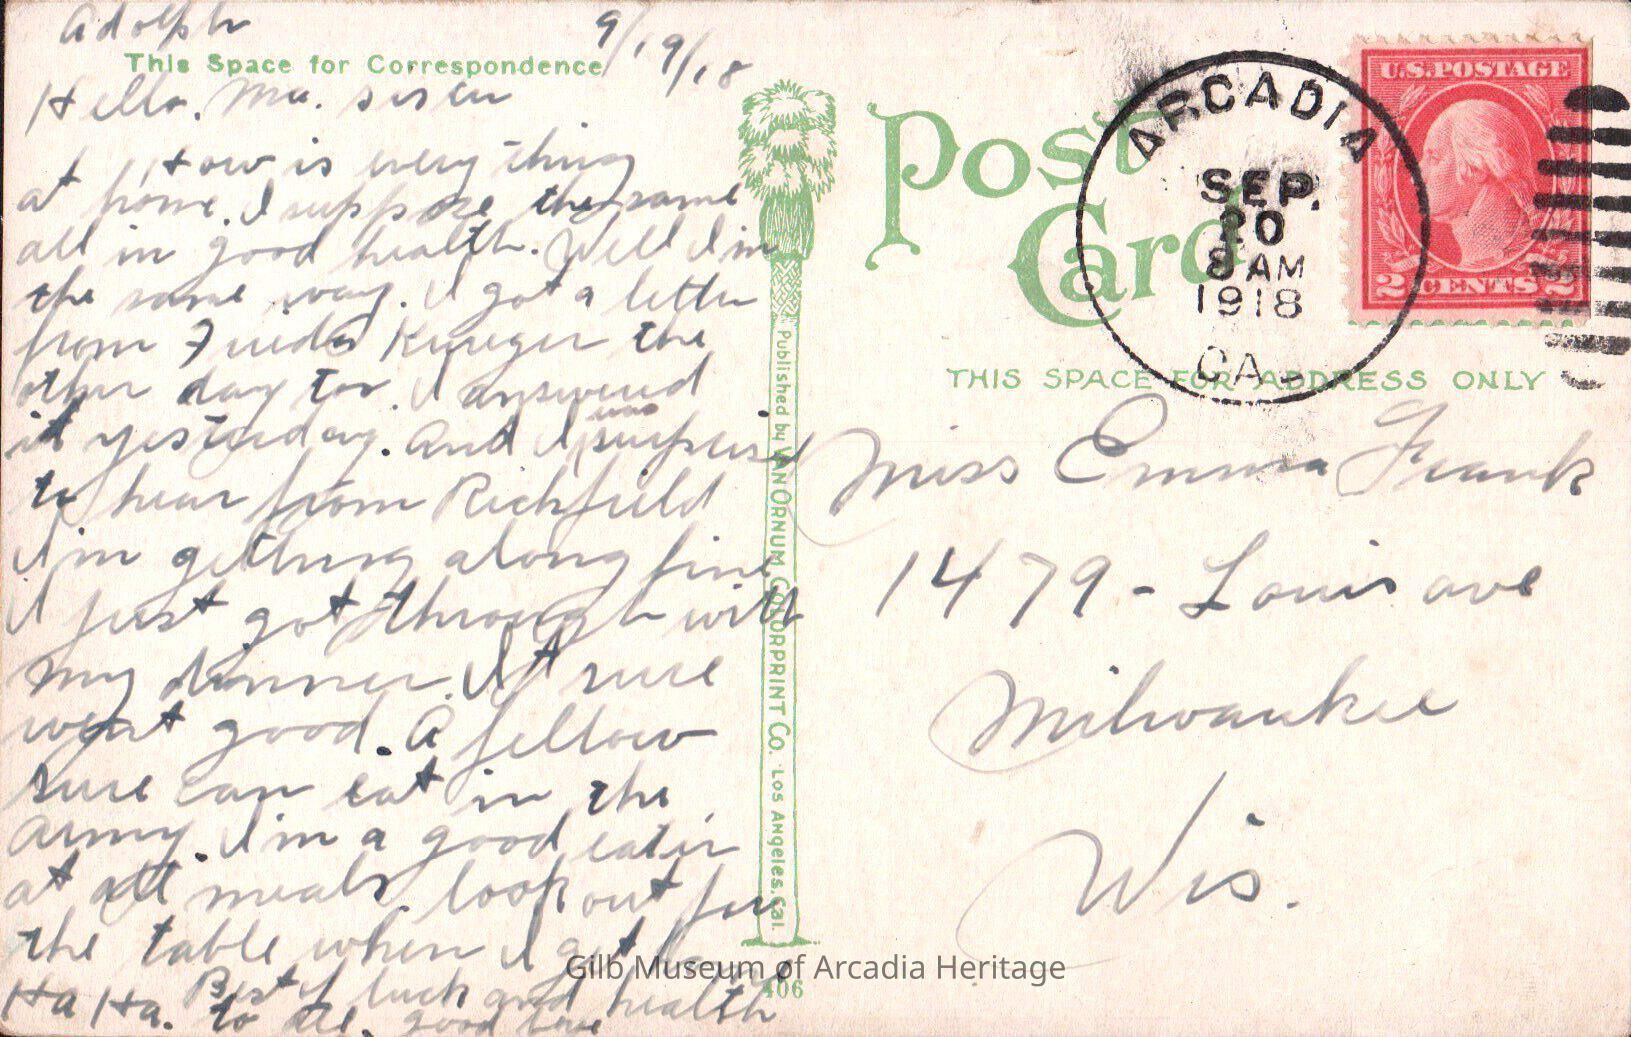 Adolph 9/19/18
This Space for Correspondence
Hello. Ma. sister
How is every thing
at home. I suppose the same
all in good health. Well I'm
the same way. I got a letter
from Frieda Krueger the
other day too. I answered
it yesterday. And I was surprised
to hear from Richfield
I'm getting along fine
I just got through with
my dinner. It sure
went good. A fellow
sure can eat in the
army. I'm a good eater
at all meals. look out for
the table when I get home
Ha Ha. Best of luck and health
to all. good bye
Published by Van Ornum Colorprint Co. Los Angeles, Cal.
406
Post
Card
ARCADIA
SEP.
20
8 AM
1918
CAL
U.S. POSTAGE
2 CENTS 2
THIS SPACE FOR ADDRESS ONLY
Miss Emma Frank
1479 - Louis ave
Milwaukee
Wis.
Gilb Museum of Arcadia Heritage